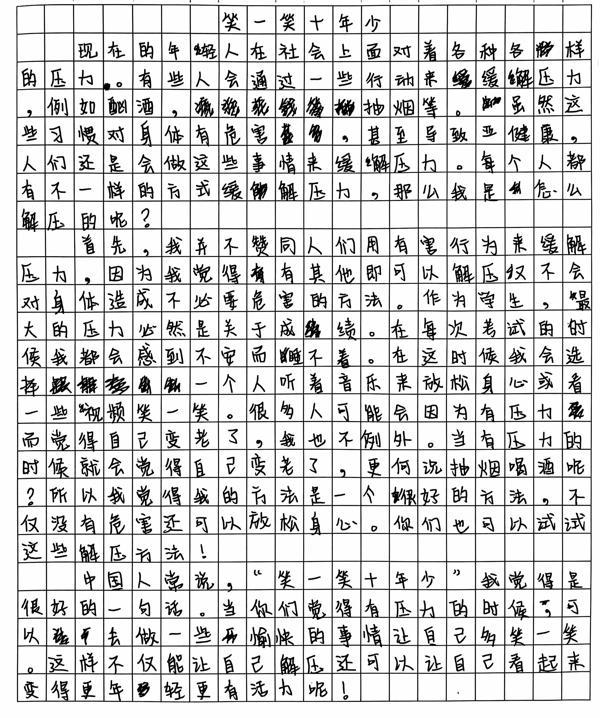 笑一笑十年少
现在的年轻人在社会上面对着各种各样
的压力。有些人会通过一些行动来缓解压力
，例如酗酒，抽烟等。虽然这
些习惯对身体有危害，甚至导致亚健康，
人们还是会做这些事情来缓解压力。每个人都
有不一样的方式缓解压力，那么我是怎么
解压的呢？
首先，我并不赞同人们用有害行为来缓解
压力，因为我觉得有其他即可以解压纹不会
对身体造成不必要危害的方法。作为学生，最
大的压力必然是关于成绩。在每次考试的时
候我都会感到不安而睡不着。在这时候我会选
择一个人听着音乐来放松身心或者看
一些视频笑一笑。很多人可能会因为有压力
而觉得自己变老了，我也不例外。当有压力的
时候就会觉得自己变老了，更何况抽烟喝酒呢
？所以我觉得我的方法是一个很好的方法，不
仅没有危害还可以放松身心。你们也可以试试
这些解压方法！
中国人常说，“笑一笑十年少”我觉得是
很好的一句话。当你们觉得有压力的时候，可
以去做一些愉快的事情让自己多笑一笑
。这样不仅能让自己解压还可以让自己看起来
变得更年轻更有活力呢！